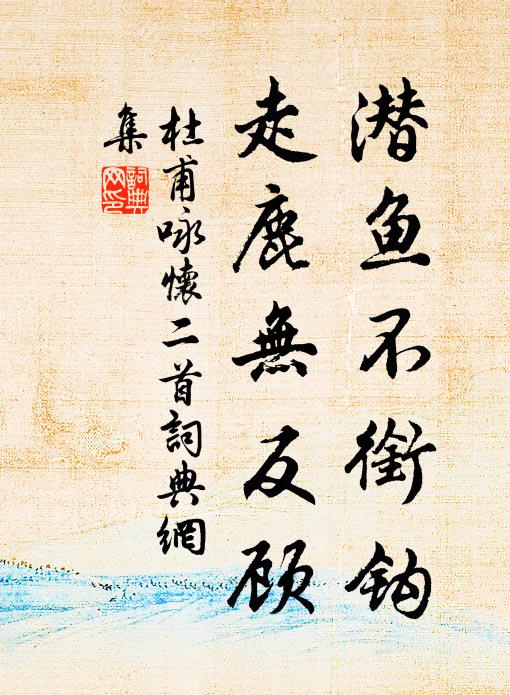 潜鱼不銜钩
走鹿無反顾
杜甫咏懷二首詞典網
集
詞典网印